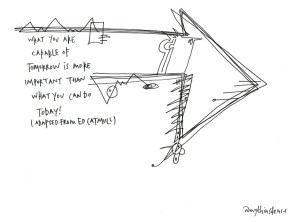 WHAT YOU ARE
CAPABLE OF
TOMORROW IS MORE
IMPORTANT THAN
WHAT YOU CAN DO
TODAY!
(ADAPTED FROM ED CATMULL)